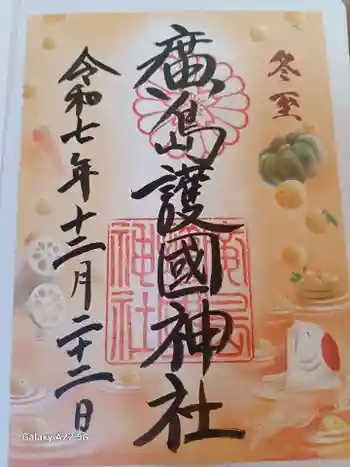 冬至
廣島護國神社
令和七年十二月二十二日
廣島護國神社
Galaxy A22 5G